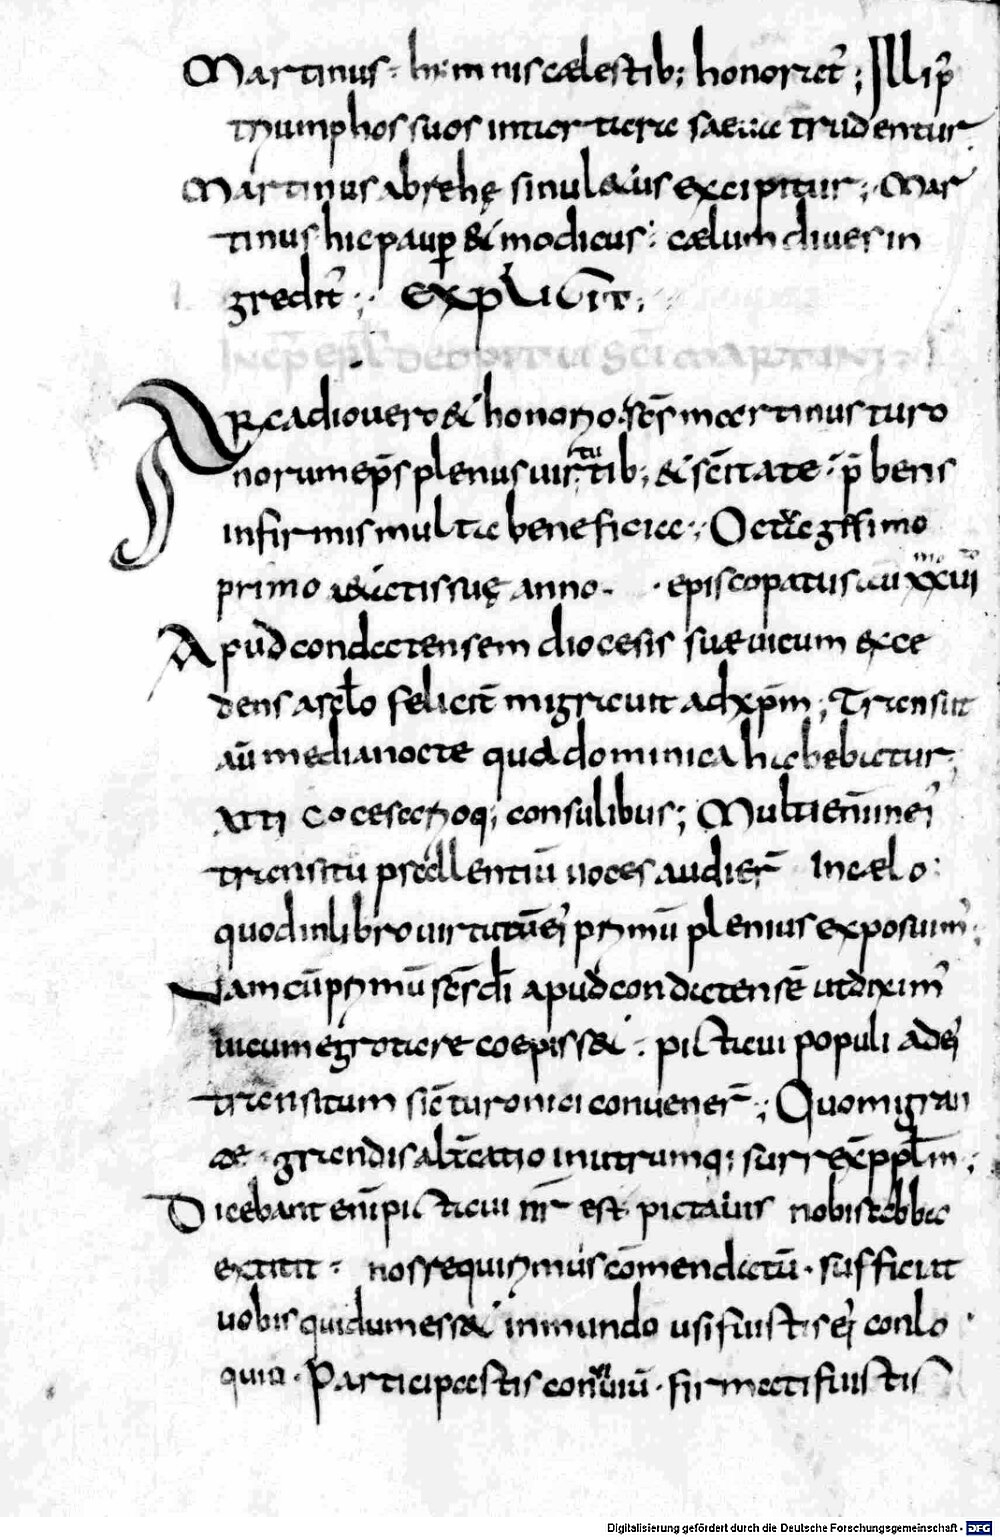 Martinus · himnis cælestib; honorat̄; Illi p̄
tryumphos suos intartara saeua trudentur.
Martinus abrahę sinu laetus excipitur; Mar
tinus hic paup & modicus: cælum diues in
gredit̄; EXPLICIT;
INCP EPL DE OBITU SCI MARTINI
ARcadio uero & honorio · scs̄ martinus turo
norum ep̄s plenus uirtutib; & sc̄itate · p̄bens
infirmis multa beneficia; Octogessimo
primo aetatis suę anno · episcopatus autē xxui mo to
Apud condatensem diocesis suæ uicum exce
dens a sclō feliciт̄ migrauit ad xp̄m; Transiit
aū media nocte qua dominica habebatur.
Attico cesarioq; consulibus; Multi enim in ei
transitū psallentiū uoces audier̄ In cælo:
quod in libro uirtutū ei primū plenius exposuim;
Nam cū primū scs̄ dī apud condatensē ut diximus
uicum egrotare coepisset · pictaui populi ad ei
transitum sic̄ turonici conuener̄; Quo migran
te · grandis altc̄atio in utrumq; surrex̄ pplm̄;
Dicebant enī pictaui nr̄ est pictauus nobis abba
extitit · nos requirimus cōmendatū · sufficiat
uobis qui dum esset in mundo usi fuistis ei conlo
quia · Participastis conuiuiū · firmati fuistis
Digitalisierung gefördert durch die Deutsche Forschungsgemeinschaft - DFG